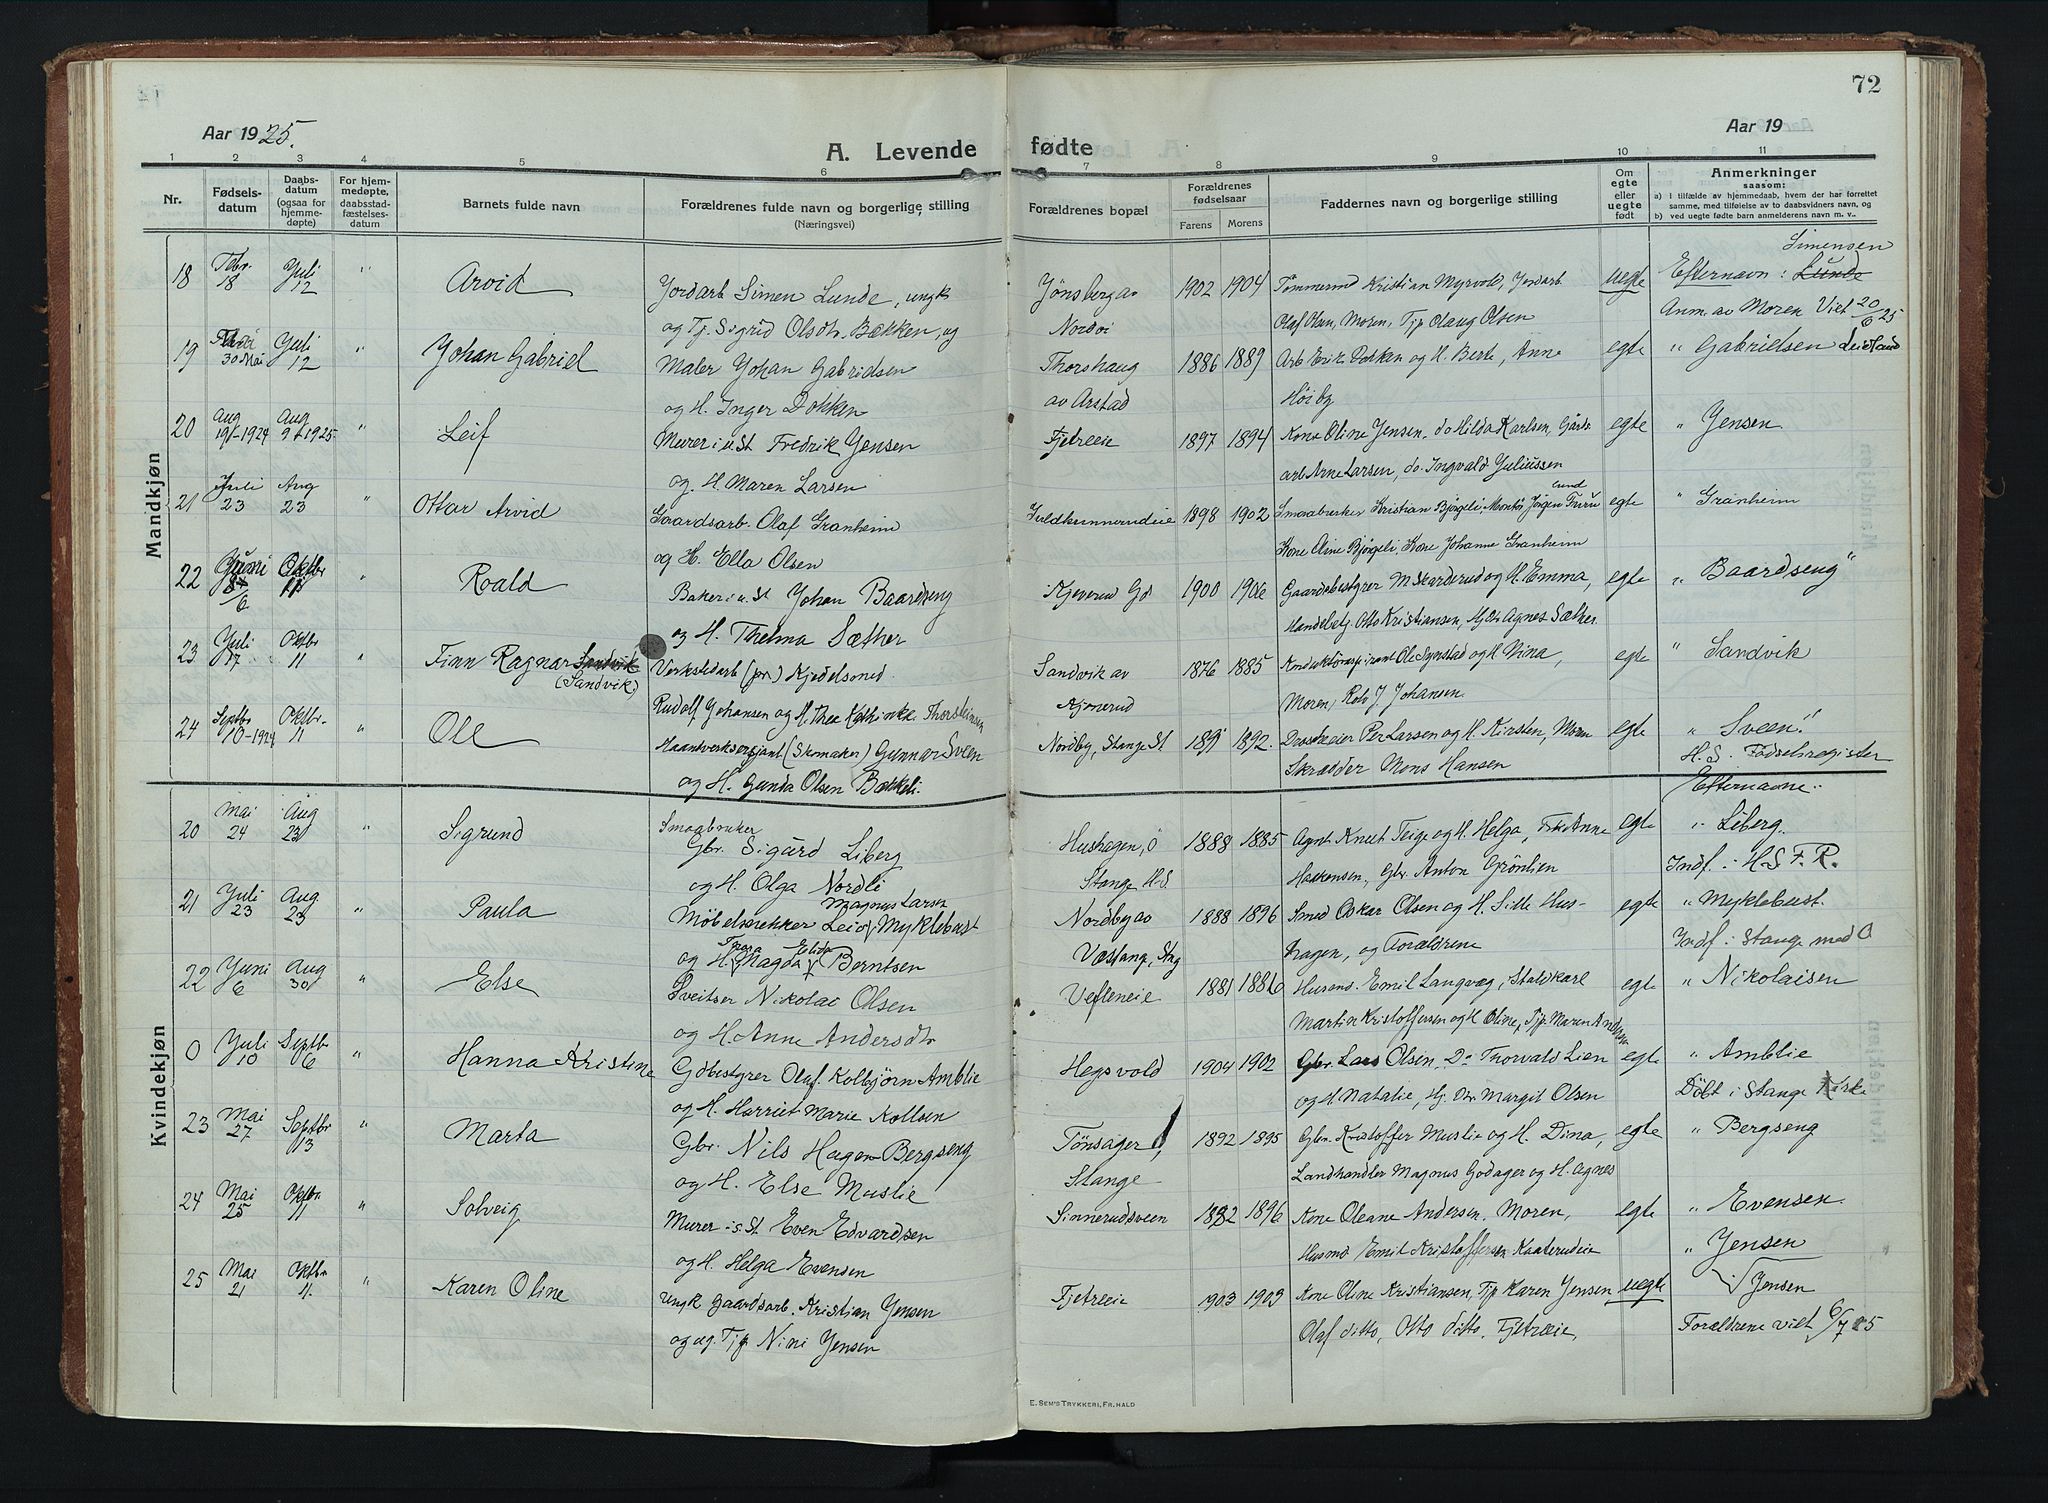 72
Aar 1925.
Aar 19
A. Levende fødte
1 2 3 4 5 6 7 8 9 10 11
Nr.
Fødsels-
datum
Daabs-
datum
(ogsaa for
hjemme-
døpte)
For hjem-
medøpte,
daabsstad-
fæstelses-
datum
Barnets fulde navn
Forældrenes fulde navn og borgerlige stilling
(Næringsvei)
Forældrenes bopæl
Forældrenes
fødselsaar
Farens Morens
Faddernes navn og borgerlige stilling
Om
egte
eller
uegte
født
Anmerkninger
saasom:
a) I tilfælde av hjemmedaab, hvem der har forrettet
samme, med tilføielse av to daabsvidners navn, og
b) ved uegte fødte barn anmelderens navn m. v..
Mandkjøn
Simensen
18 Febr. 18 Juli 12 " Arvid Jordarb Simen Lunde, ungk Jønsberg av 1902 1904 Tømmermd Kristian Myrvold, Jordarb. uegte Efternavn: Lunde
og Tj. Sigrid Olsdtr. Bækken, ug Nordvi Olaf Olsen, Moren, Tjp Olaug Olsen Anm. av Moren Viet 20/6 25
19 30 Mai Juli 12 " Johan Gabriel Maler Johan Gabrielsen Thorshaug 1886 1889 Arb Erik Dokken og H. Berte, Anne egte " Gabrielsen
og H. Inger Dokken av Arstad Høiby
20 Aug 19/-1924 Aug 9 1925 " Leif Murer i u. St Fredrik Jensen Fjetreeie 1897 1894 Kone Oline Jensen, do Hilda Karlsen, Gårds egte " Jensen
og H. Maren Larsen arb Arne Larsen, do. Ingvald Juliussen
21 Juli 23 Aug 23 " Ottar Arvid Gaardsarb. Olaf Granheim 1898 1902 Smaabruker Kristian Bjørgeli, Montør Jørgen Furu egte " Granheim
lund
og H. Ella Olsen Kone Oline Bjørgeli, Kone Johanne Granheim
22 Juni 8/6 Oktbr 11 " Roald Baker i u. St Johan Baardseng Kjeverud Gd 1900 1906 Gaardsbestyrer M Skarderud og H. Emma, egte " Baardseng"
og H. Thelma Sæther Handelsbetj. Otto Kristiansen, Hjdtr Agnes Sæther
23 Juli 17 Oktbr 11 " Finn Ragnar Sandvik Verkstedarb (pr.) Kjedelsmed Sandvik av 1876 1885 Konduktøraspirant Ole Synstad og H Nina, egte " Sandvik
(Sandvik) Rudolf Johansen og H. Thea Kathinka Thorsteinsen Kjonerud Moren, Rolv J Johansen
24 Septbr 10-1924 Oktbr. 11 " Ole Haandverksersjant (Skomaker) Gunnar Sveen Nordby, Stange St 1892. Droskeeier Per Larsen og H. Kirsten, Moren egte " Sveen"
og H. Gunda Olsen Bækkeli. Skrædder Mons Hansen H.S. Fødselsregister
Kvindekjøn
Efternavne:
20 Mai 24 Aug 23 " Sigrund Smaabruker
Gbr. Sigurd Liberg Hushagen, Ö 1888 1885 Agent Knut Teige og H. Helga, Frk Anne egte " Liberg.
og H. Olga Nordli Stange H.S. Haakensen, Gbr. Anton Grönlien Indf. i H S F. R.
21 Juli 23 Aug 23 " Paula Magnus Larsen
Møbelsnekker Leiof Myklebust Nordby av 1888 1896 Smed Oskar Olsen og H. Sille Hus- egte " Myklebust.
Elida
og H. Magda Berntsen Væstange, Stng hagen, og Forældrene Indf. i Stange med O
22 Juni 6 Aug 30 " Else Sveitser Nikolai Olsen 1881 1886 Husm. Emil Langvæg, Staldkarl egte " Nikolaisen
og H. Anne Andersdtr Martin Kristoffersen og H Oline, Tjp. Maren Andersen
0 Juli 10 Septbr 6 " Hanna Kristine Gdbestyrer Olaf. Kolbjørn Amblie Hegsvold 1904 1902 Gbr Lars Olsen, Do Thorvald Lien egte " Amblie
og H. Harriet Marie Kollsen og H Natalie, Hj. Dtr. Margit Olsen Döbt i Stange Kirke
23 Mai 27 Septbr 13 " Marta Gbr. Nils Hagen Bergseng Tönsager, 1892 1895 Gbr. Kristoffer Muslie og H. Dina, egte " Bergseng
og H. Else Muslie Stange Landhandler Magnus Godager og H. Agnes
24 Mai 25 Oktbr 11 " Solveig Murer i s. St Even Edvardsen Sinnerudsveen 1892 1896 Kone Oleane Andersen, Moren, egte " Evensen
og H. Helga Evensen Husmd Emil Kristoffersen Kaaterudeie
" Jensen
25 Mai 21 Oktbr 11. " Karen Oline Ungk Gaardsarb. Kristian Jensen Fjetreeie 1903 1903 Kone Oline Kristiansen, Tjp Karen Jensen uegte Jensen
og ug. Tjp. Nini Jensen Olaf ditto, Otto ditto, Fjetreeie, Forældrene viet 6/7 25
E. SEM'S TRYKKERI, FR. HALD